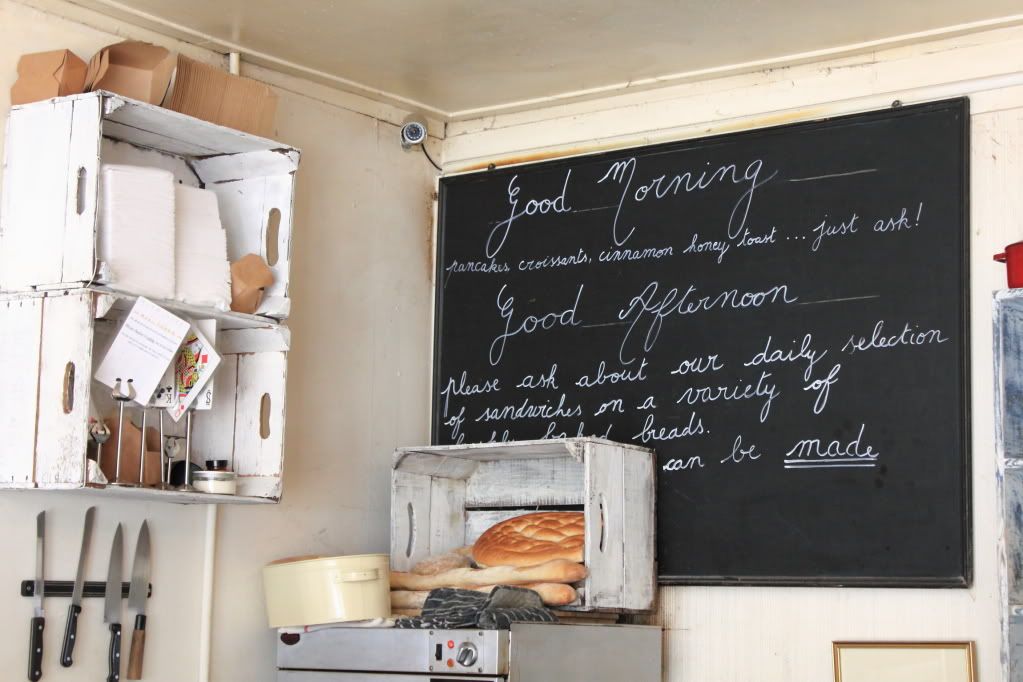 Good Morning
pancakes, croissants, cinnamon honey toast ... just ask!
Good Afternoon
please ask about our daily selection
of sandwiches on a variety of
baked breads.
can be made
K
S